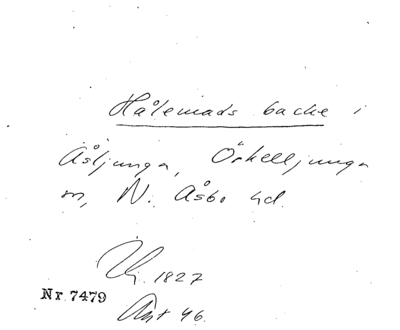 Hålemads backe i
Åsljunga, Örkelljunga
sn, N. Åsbo hd.
1827
Nr 7479
Ant 46.